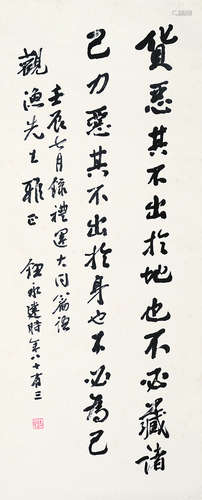 貨惡其不出於地也不必藏諸
己力惡其不出於身也不必為己
壬辰七月錄禮運大同篇語
觀漁先生雅正
鈕永建時年八十有三